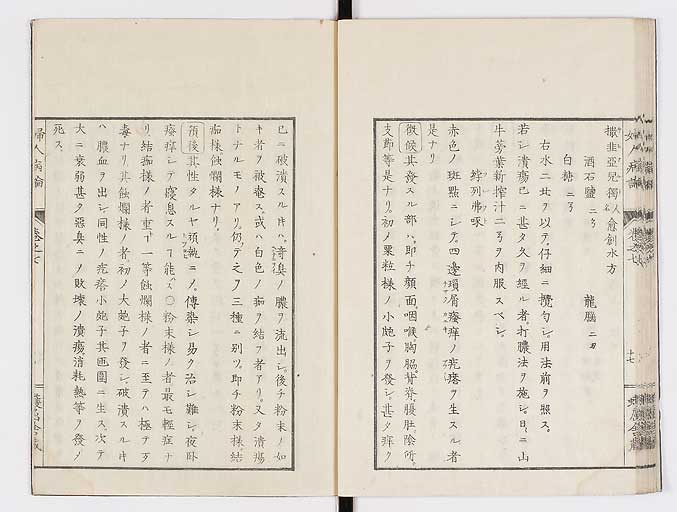 酒石鹽 二ゟ　龍腦 二刄
白糖 二ゟ
右水二 ヲ以テ仔細ニ攪勻シ用法前ヲ照ス
若シ潰瘍已ニ甚タ久ヲ經ル者打膿法ヲ施シ日ニ山
牛蒡葉新搾汁二ゟヲ内服スベシ
赤色ノ斑點ニシテ四邊瑣屑癢痒ノ疙瘩ヲ生スル者
是ナリ
徴候其發スル部ハ即チ顔面咽喉胸脇背脊腹肚陰所
支節等是ナリ初メ粟粒様ノ小皰子ヲ發シ甚タ痒ク
已ニ破潰スル ハ 臭ノ膿ヲ流出シ後チ粉末ノ如
キ者ヲ被套ス或ハ白色ノ痂ヲ結フ者アリ又タ潰瘍
トナルモノアリ仍テ之ヲ三種ニ別ツ即チ粉末様結
痂様蝕爛様ナリ
預後其性タルヤ頑 ニ 傳染シ易ク治シ難シ夜臥
癢痒シテ寝息スル 能ハス○粉末様ノ者最モ輕症ナ
リ結痂様ノ者重 一等蝕爛様ノ者ニ至テハ極テ歹
毒ナリ其蝕爛様ノ者初メ大皰子ヲ發シ破潰スル
ハ膿血ヲ出シ同性ノ疙瘩小皰子其 圍ニ生ス次テ
大ニ衰弱甚ク惡臭ニ 敗壊ノ潰瘍消耗熱等ヲ發
死ス
婦人病論
卷之七